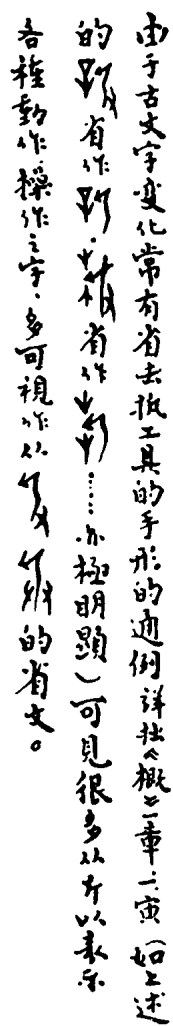 由于古文字变化常有省去扳工具的手形的通例详拙《概》一章二、寅(如上述
的 省作 · 省作 ……亦極明顯)可見很多从斤以表示
各種動作、操作之字,多可視作从 的省文。